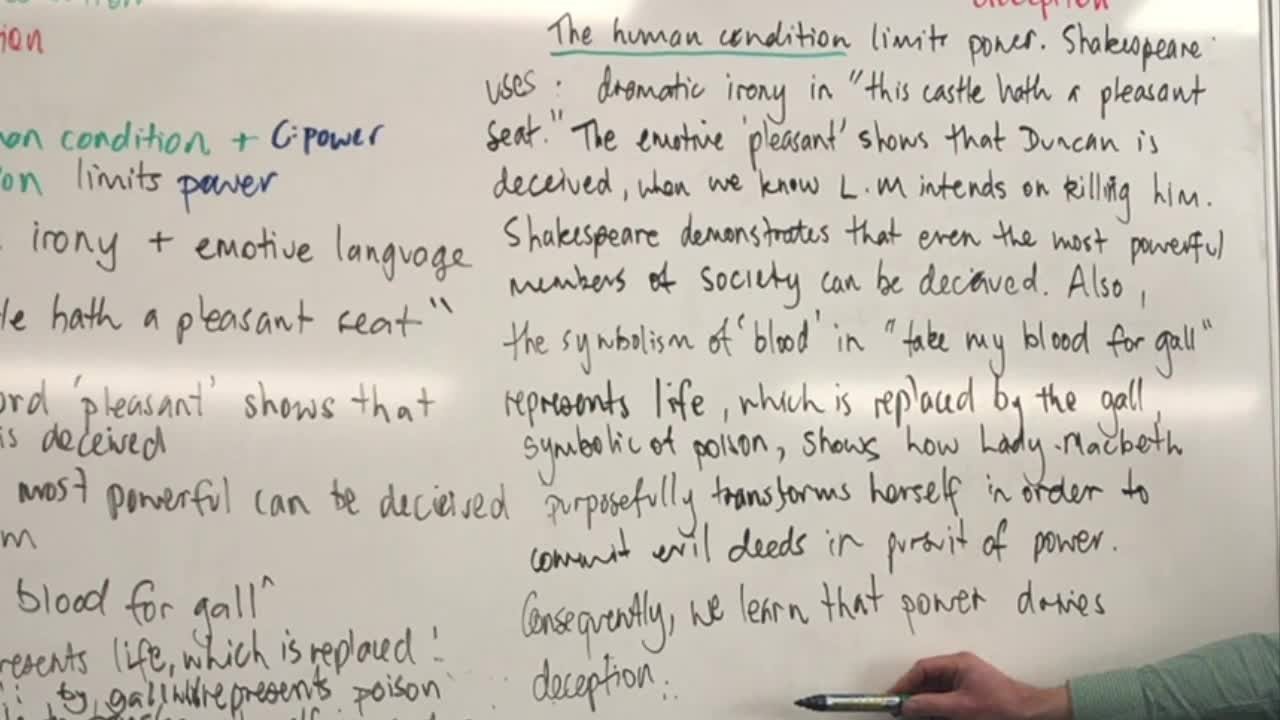 ion
condition + C: power
on limits power
irony + emotive language
hath a pleasant seat"
ord 'pleasant' shows that
is deceived
most powerful can be decieved
m
blood for gall"
resents life, which is replaced
by gall represents poison
deception
The human condition limits power. Shakespeare
uses: dramatic irony in "this castle hath a pleasant
seat." The emotive 'pleasant' shows that Duncan is
deceived, when we know L.M intends on killing him.
Shakespeare demonstrates that even the most powerful
members of society can be decieved. Also,
the symbolism of 'blood' in "take my blood for gall"
represents life, which is replaced by the gall,
symbolic of poison, shows how Lady Macbeth
purposefully transforms herself in order to
commit evil deeds in pursuit of power.
Consequently, we learn that power
deception.